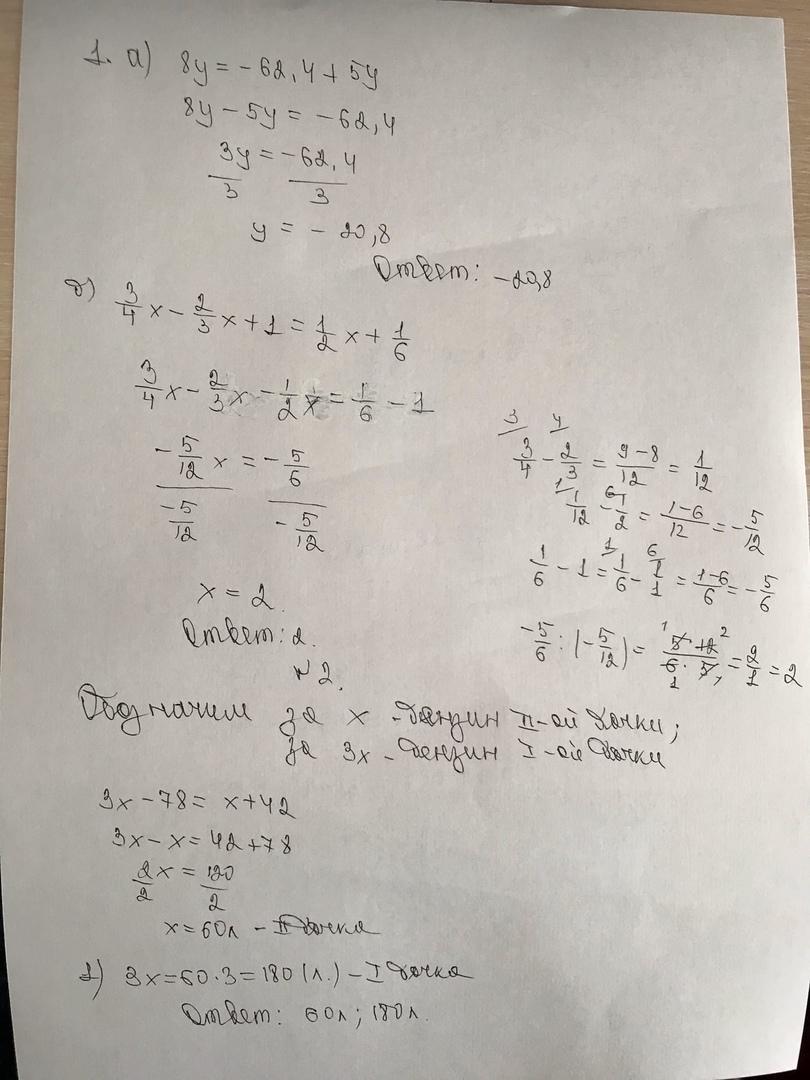 1. а) 8y = -62,4 + 5y
8y - 5y = -62,4
3y/3 = -62,4/3
y = -20,8
Ответ: -20,8
б) 3/4 x - 2/3 x + 1 = 1/2 x + 1/6
3/4 x - 2/3 x - 1/2 x = 1/6 - 1
-5/12 x / -5/12 = -5/6 / -5/12
x = 2.
Ответ: 2.
3/4 - 2/3 = 9-8/12 = 1/12
1/12 - 1/2 = 1-6/12 = -5/12
1/6 - 1 = 1/6 - 1/1 = 1-6/6 = -5/6
-5/6 : (-5/12) = 5·12/6·5 = 2/1 = 2
№2.
Обозначим за x - бензин II-ой бочки;
за 3x - бензин I-ой бочки
3x - 78 = x + 42
3x - x = 42 + 78
2x/2 = 120/2
x = 60л - II бочка
1) 3x = 60·3 = 180 (л.) - I бочка
Ответ: 60л; 180л.